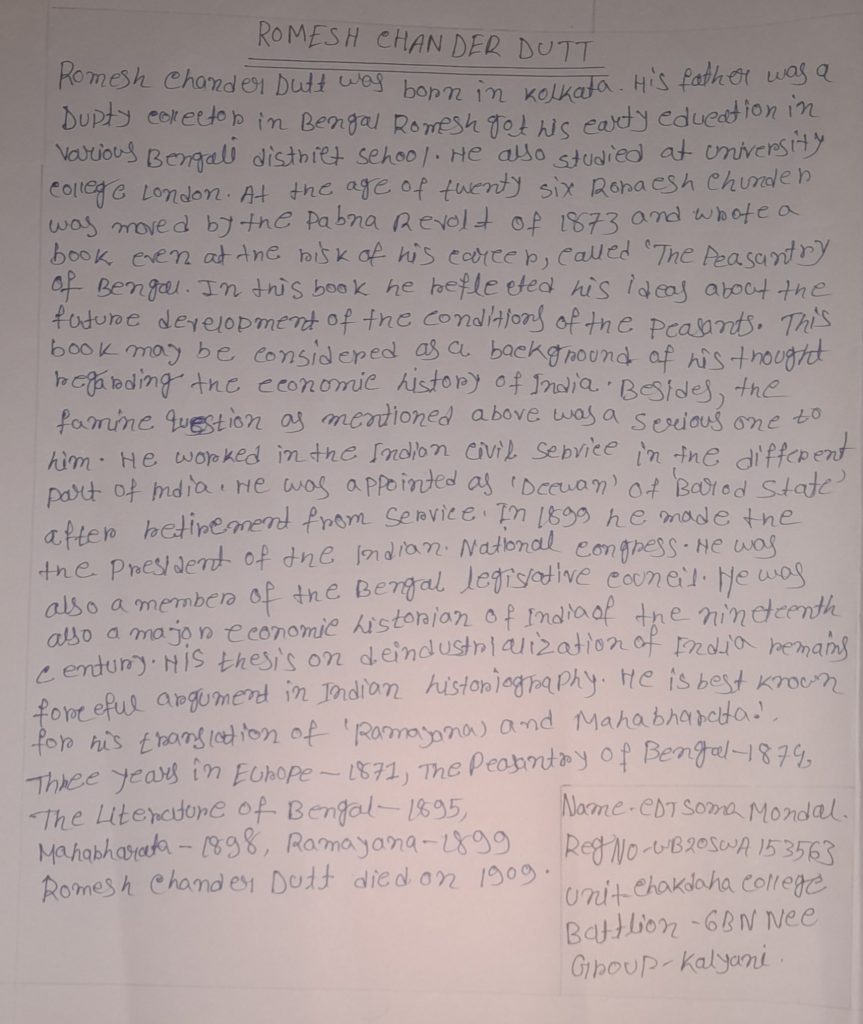 ROMESH CHANDER DUTT
Romesh Chander Dutt was born in Kolkata. His father was a
Dupty corector in Bengal Romesh got his early education in
various Bengali district school. He also studied at university
college London. At the age of twenty six Romaesh Chunder
was moved by the Pabna Revolt of 1873 and wrote a
book even at the risk of his career, called 'The Peasantry
of Bengal. In this book he reflected his ideas about the
future development of the conditions of the peasants. This
book may be considered as a background of his thought
regarding the economic history of India. Besides, the
famine question as mentioned above was a serious one to
him. He worked in the Indian civil service in the different
part of India. He was appointed as 'Deewan' of 'Barod State'
after retirement from service. In 1899 he made the
the president of the Indian. National congress. He was
also a member of the Bengal legislative council. He was
also a major economic historian of India of the nineteenth
century. His thesis on deindustrialization of India remains
forceful argument in Indian historiography. He is best known
for his translation of 'Ramayana) and Mahabharata!.
Three years in Europe - 1871, The Peasantry of Bengal-1874,
The Literature of Bengal - 1895,
Mahabharata - 1898, Ramayana - 1899
Romesh Chander Dutt died on 1909.
Name - CDT Soma Mondal.
Reg No - WB20SWA 153563
Unit - Chakdaha College
Battlion - 6BN Nee
Group - Kalyani.